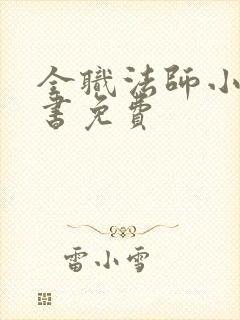 全職法師小
書免費
雷小雪